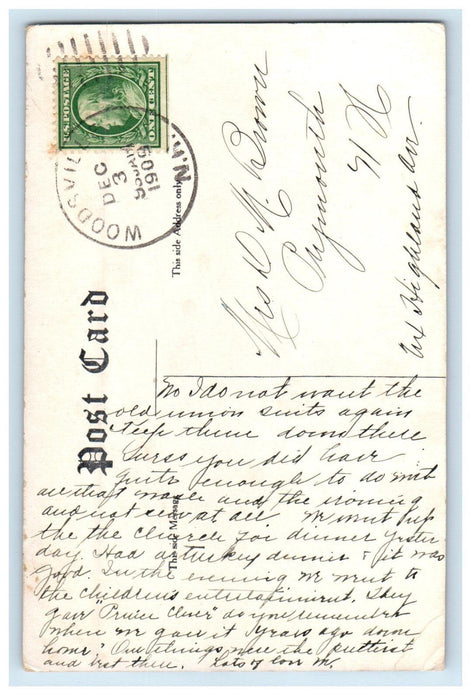 U.S. POSTAGE
ONE CENT
WOODSVILLE N.H.
DEC
3
1909
Post Card
This side Address only
This side Message
Mrs D M Brown
Plymouth
N H
Highland Av.
No I do not want the
old union suits again
Keep them down there
Guess you did have
quite enough to do with
all that and the ironing
and not serv at all We went up
the the Church for dinner yester-
day. Had a turkey dinner & it was
good. In the evening we went to
the children's entertainment. They
gave "Prince Clever" do you remember
when we gave it years ago down
home? Our things were the prettiest
and best there. Lots of love M.